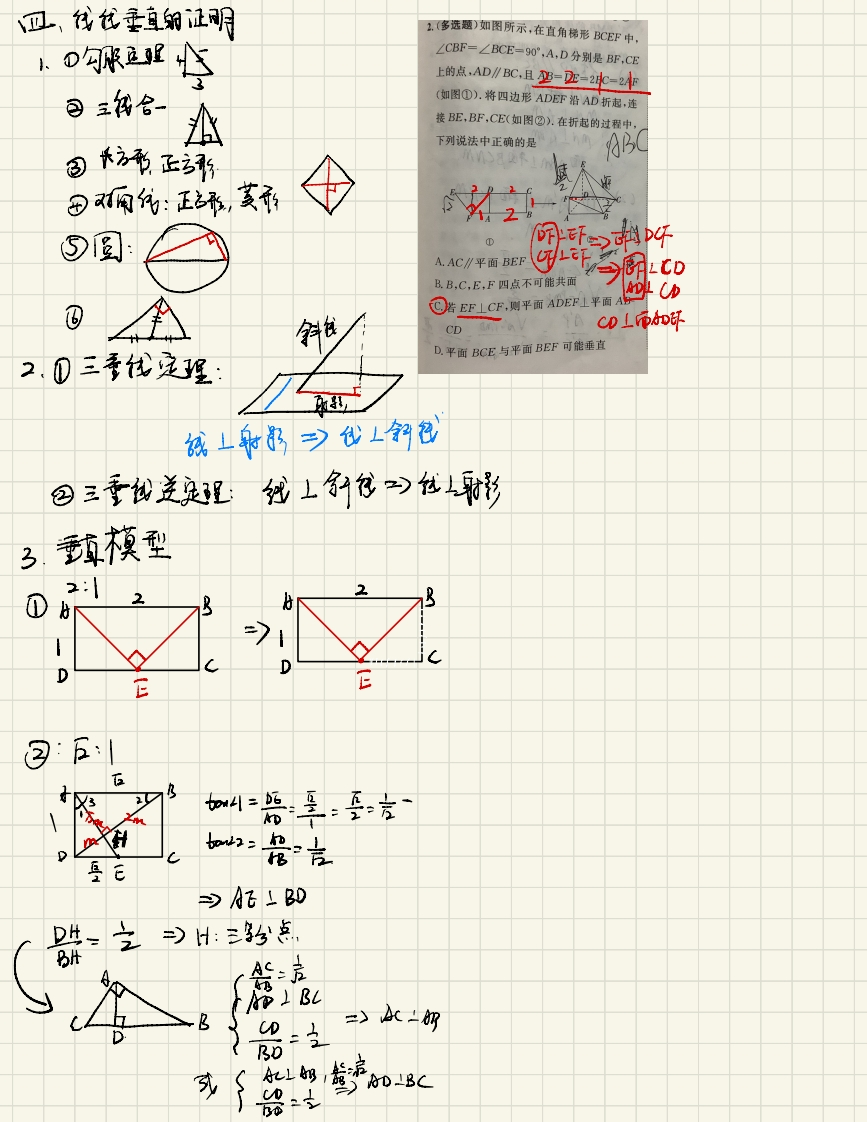 四、线线垂直的证明
1. ①勾股定理 4 5 3
②三线合一
③长方形,正方形
④对角线:正方形,菱形
⑤圆:
⑥
2.(多选题)如图所示,在直角梯形BCEF中,
∠CBF=∠BCE=90°,A,D分别是BF,CE
上的点,AD∥BC,且AB=DE=2BC=2AF
2 2 1 1
(如图①).将四边形ADEF沿AD折起,连
接BE,BF,CE(如图②).在折起的过程中,
下列说法中正确的是
ABC
E 2 D 2 C
1
F 1 A 2 B
①
DF⊥EF
CF⊥EF
⇒EF⊥DCF
A.AC∥平面BEF
⇒EF⊥CD
B.B,C,E,F四点不可能共面
AD⊥CD
C.若EF⊥CF,则平面ADEF⊥平面AB
CD
CD⊥面ADEF
D.平面BCE与平面BEF可能垂直
2. ①三垂线定理:
斜线
射影
线⊥射影⇒线⊥斜线
②三垂线逆定理: 线⊥斜线⇒线⊥射影
3. 垂直模型
① 2:1
A 2 B
1
D E C
⇒
A 2 B
1
D E C
②: √2:1
√2
A 3 2 B
1 1 √3m 2m
m H
D √2/2 E C
tan∠1=DE/AD=(√2/2)/1=√2/2=1/√2
tan∠2=AD/AB=1/√2
⇒AE⊥BD
DH/BH=1/2 ⇒H:三等分点
A
C D B
{AC/AB=1/√2
AD⊥BC
CD/BD=1/2 ⇒AC⊥AB
或{AC⊥AB,AC/AB=1/√2
CD/BD=1/2 ⇒AD⊥BC